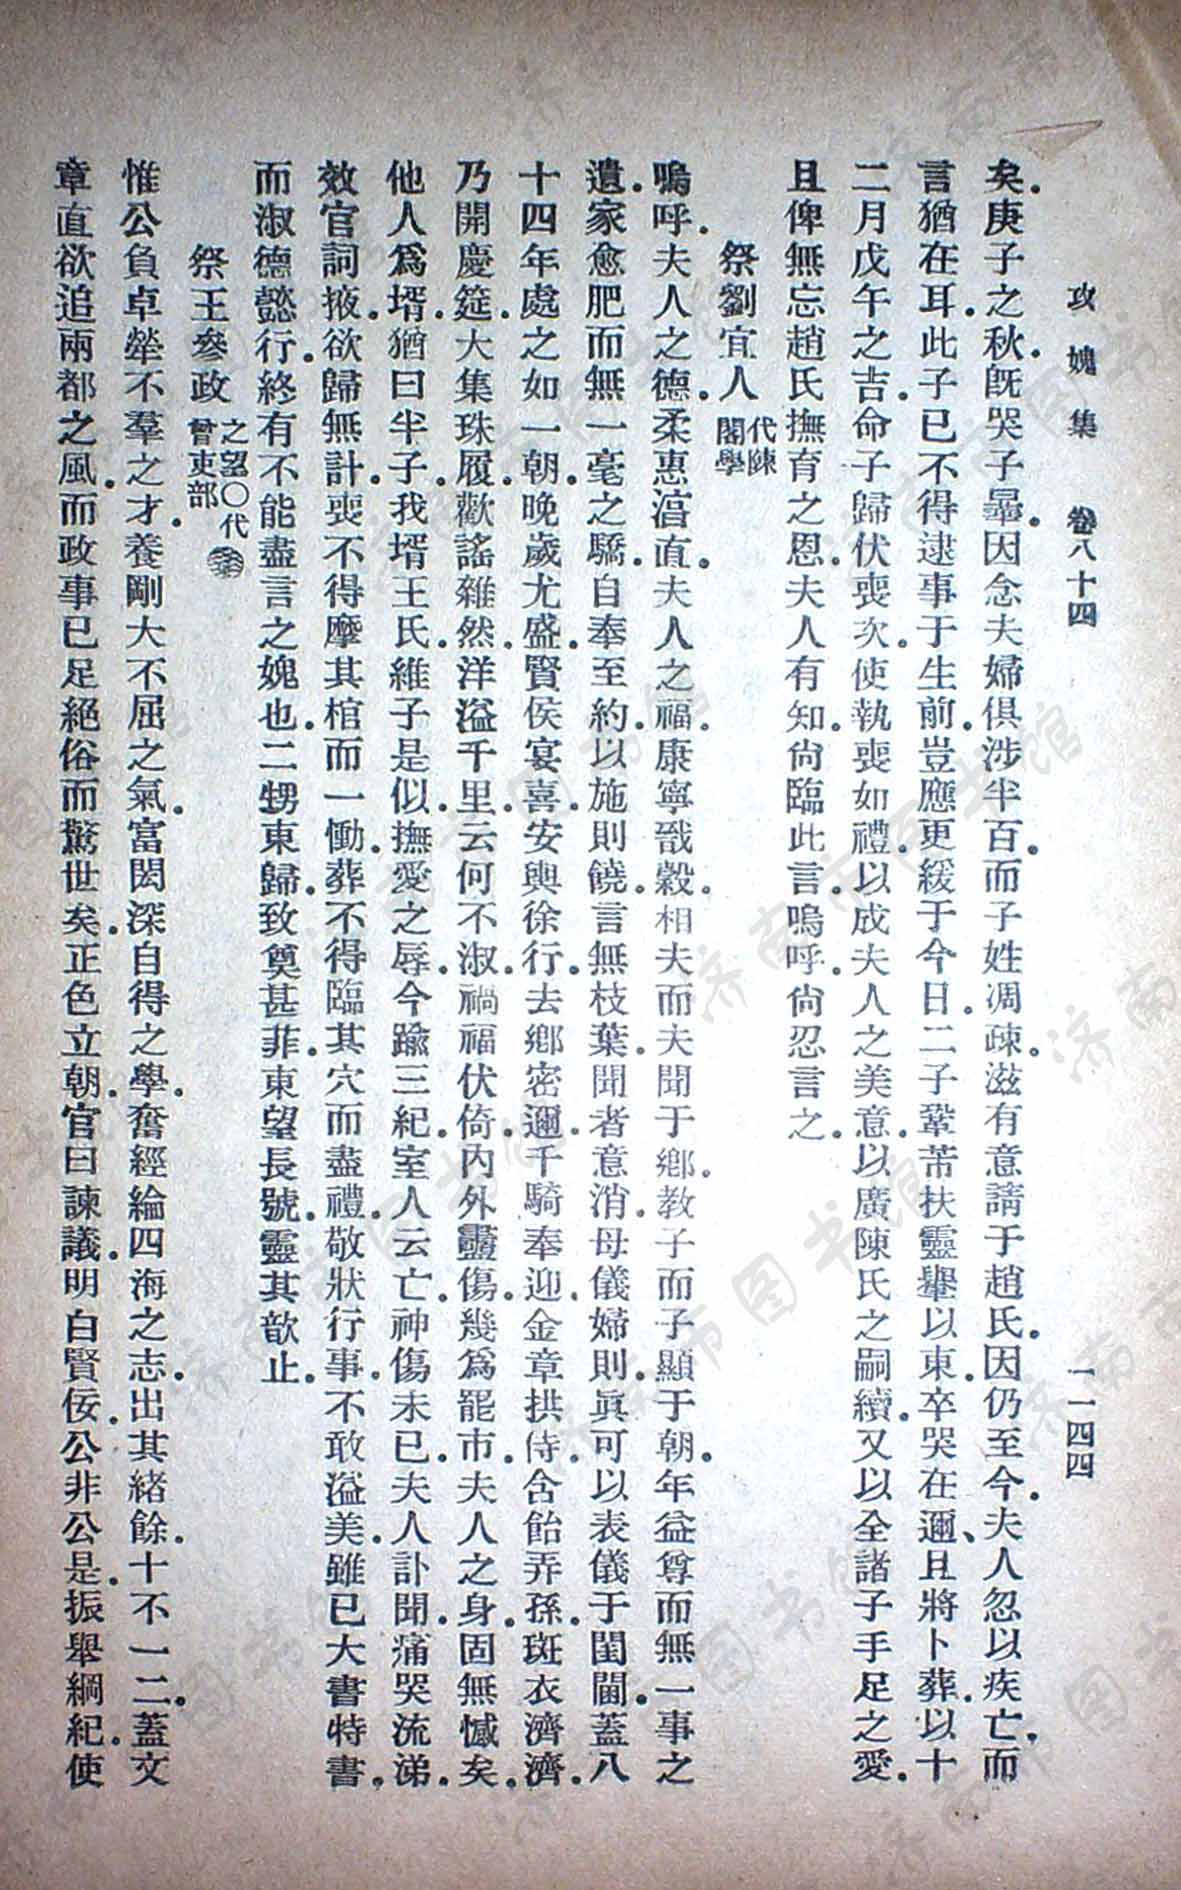 攻媿集　卷八十四　一一四四
矣。庚子之秋。旣哭子暈。因念夫婦俱涉半百。而子姓凋疎。滋有意請于趙氏。因仍至今。夫人忽以疾亡。而
言猶在耳。此子已不得逮事于生前。豈應更緩于今日。二子鞏芾扶靈轝以東。卒哭在邇、且將卜葬。以十
二月戊午之吉。命子歸伏喪次。使執喪如禮。以成夫人之美意。以廣陳氏之嗣續。又以全諸子手足之愛。
且俾無忘趙氏撫育之恩。夫人有知。尙臨此言。嗚呼。尙忍言之。
祭劉宜人代陳閣學
嗚呼。夫人之德。柔惠淯直。夫人之福。康寧戩穀。相夫而夫聞于鄉。教子而子顯于朝。年益尊而無一事之
遺。家愈肥而無一毫之驕。自奉至約。以施則饒。言無枝葉。聞者意消。母儀婦則。眞可以表儀于閨闈。蓋八
十四年。處之如一朝。晚歲尤盛。賢侯宴喜。安輿徐行。去鄉密邇。千騎奉迎。金章拱侍。含飴弄孫。斑衣濟濟。
乃開慶筵。大集珠履。歡謠雜然。洋溢千里。云何不淑。禍福伏倚。內外衋傷。幾爲罷市。夫人之身。固無憾矣。
他人爲壻。猶曰半子。我壻王氏。維子是似。撫愛之辱。今踰三紀。室人云亡。神傷未已。夫人訃聞。痛哭流涕。
效官詞掖。欲歸無計。喪不得摩其棺而一慟。葬不得臨其穴而盡禮。敬狀行事。不敢溢美。雖已大書特書。
而淑德懿行。終有不能盡言之媿也。二甥東歸。致奠甚菲。東望長號。靈其歆止。
祭王參政之望○代曾吏部
惟公負卓犖不羣之才。養剛大不屈之氣。富閎深自得之學。奮經綸四海之志。出其緒餘。十不一二。蓋文
章直欲追兩都之風。而政事已足絕俗而驚世矣。正色立朝。官曰諫議。明白賢佞。公非公是。振舉綱紀。使